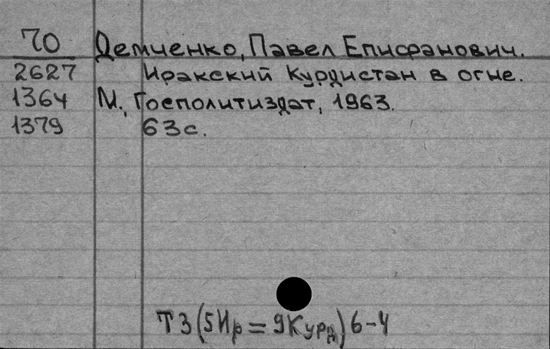 70 Демченко, Павел Епифанович.
2627 Иракский Курдистан в огне.
1364 М., Госполитиздат, 1963.
1379 63с.
Т3(5Ир=9Курд)6-4